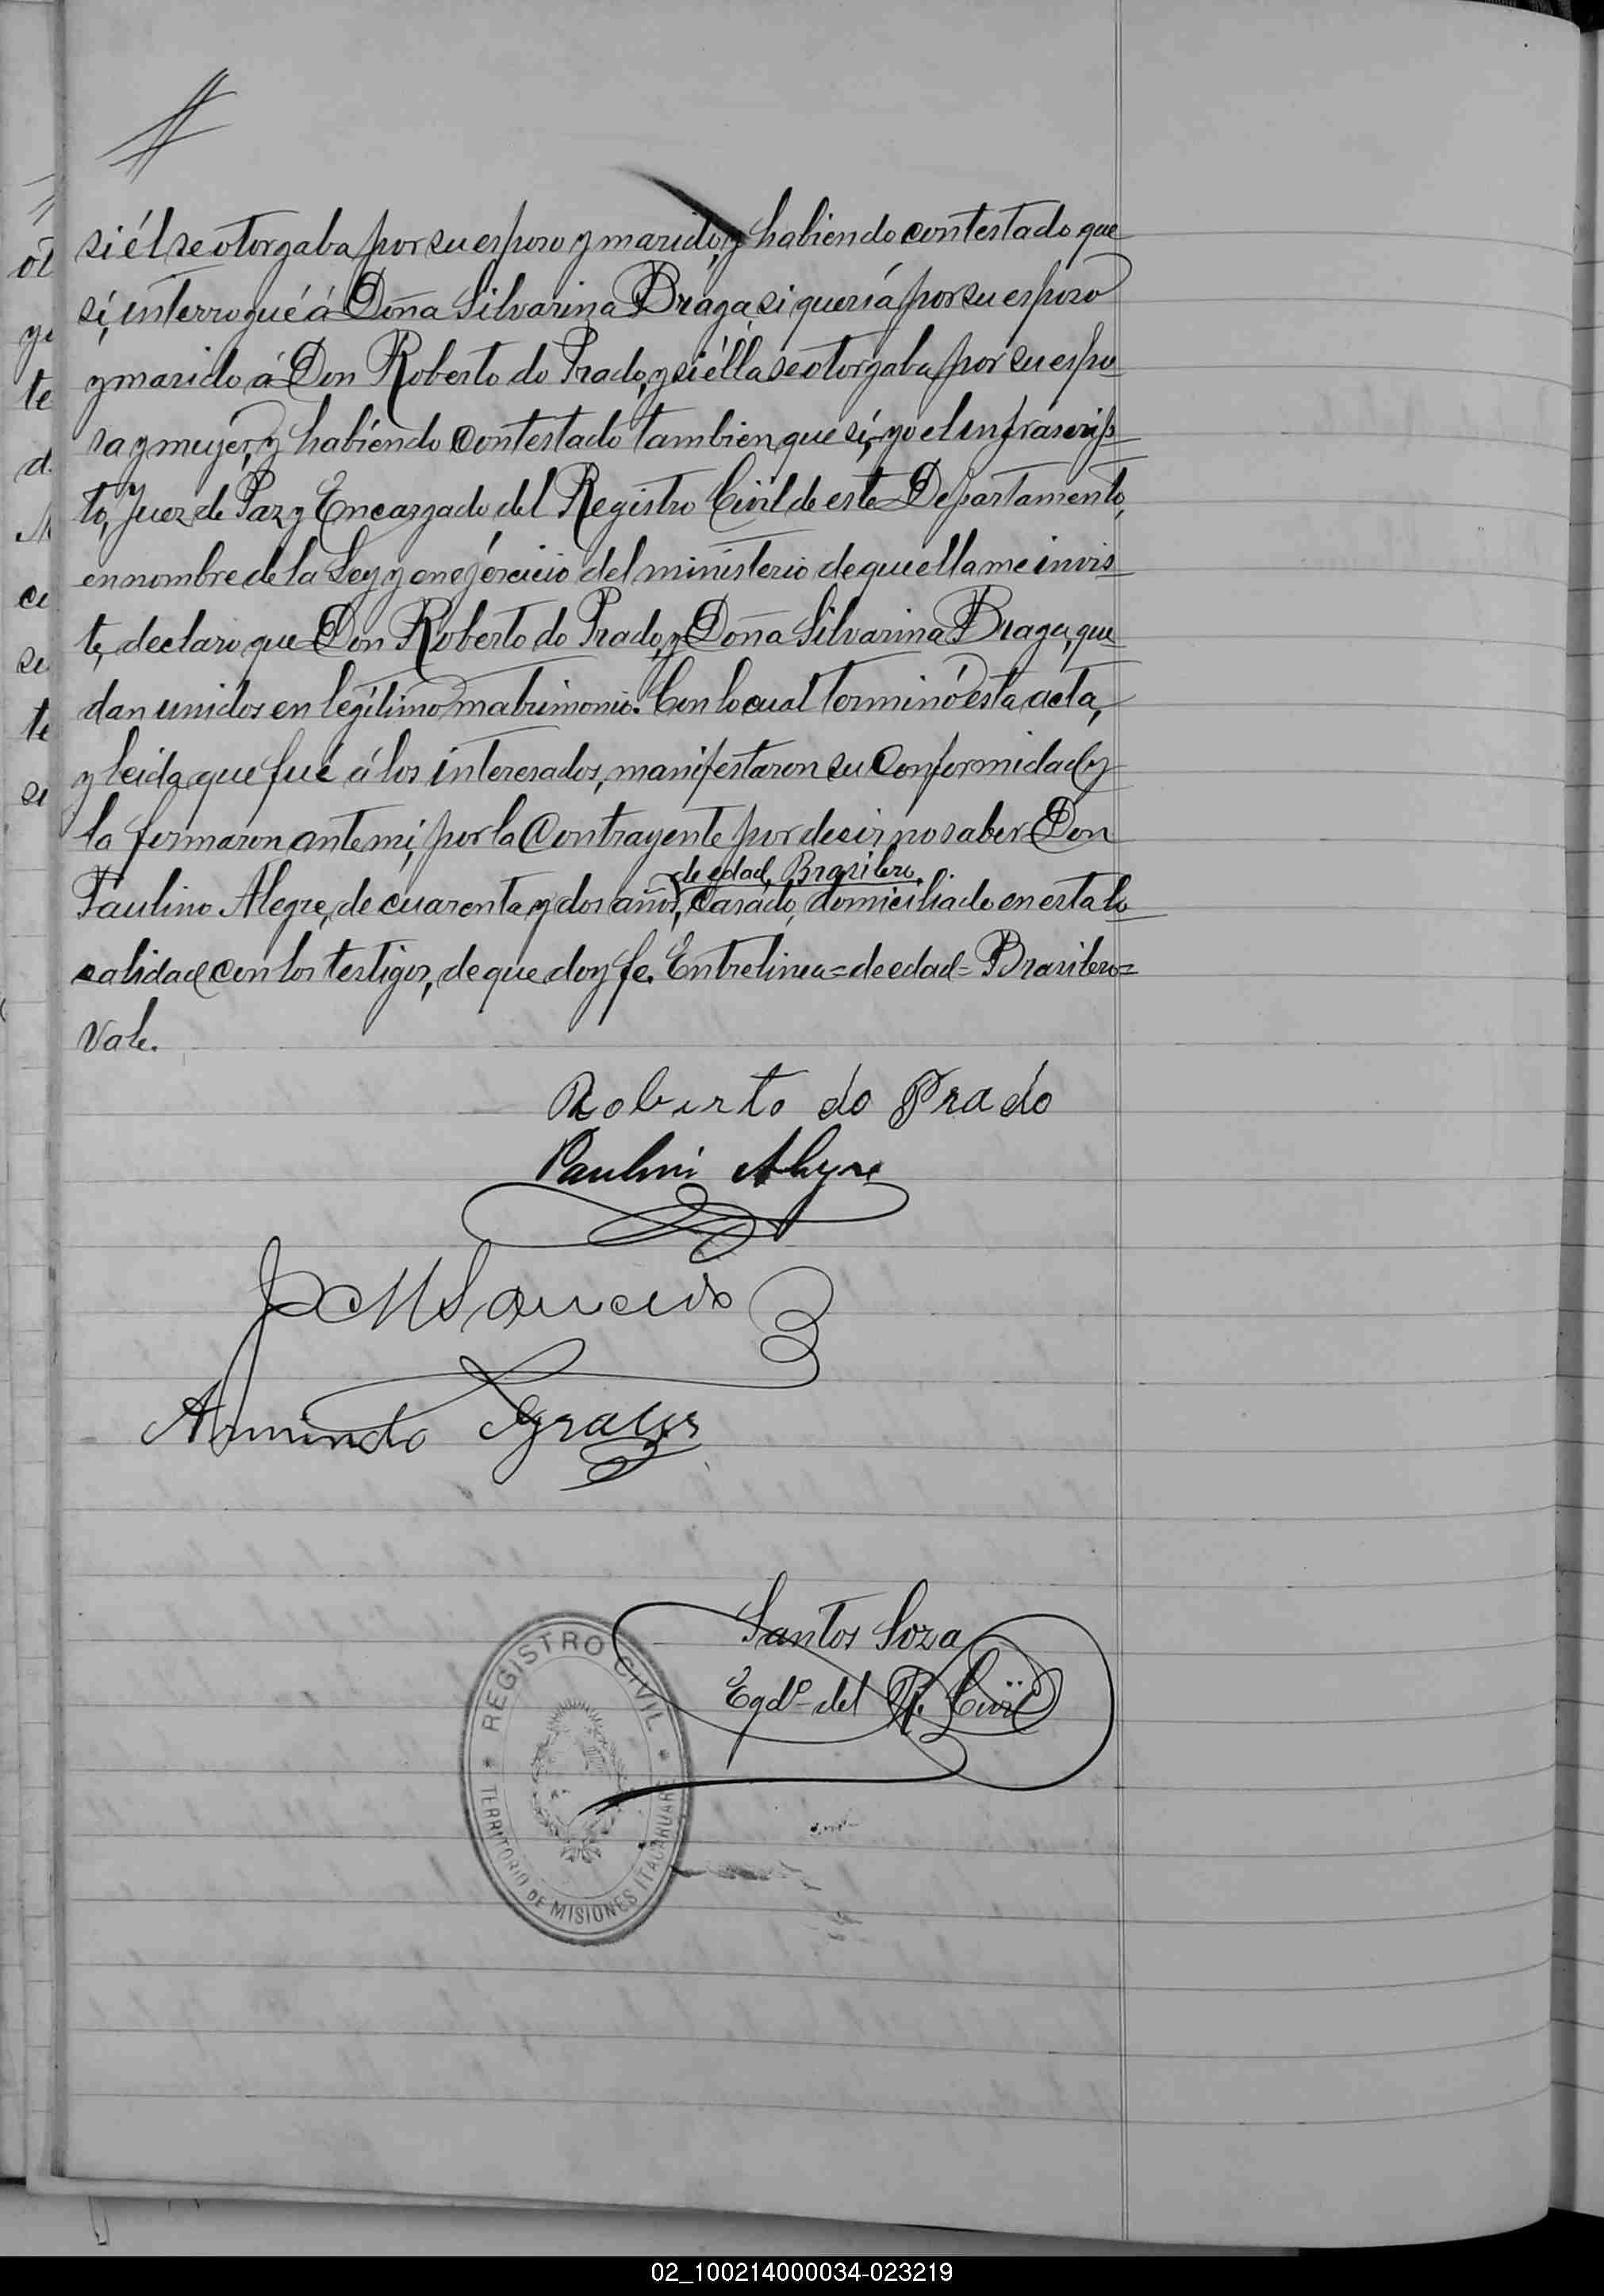 si él se otorgaba por su esposo y marido, y habiendo contestado que
sí, interrogué á Doña Silvarina Braga, si quería por su esposo
y marido á Don Roberto do Prado, y si élla se otorgaba por su espo-
sa y mujer, y habiendo contestado tambien que sí, yo el infrascrip-
to, Juez de Paz y Encargado del Registro Civil de este Departamento,
en nombre de la Ley y en ejércicio del ministerio de que ella me invis-
te, declaro que Don Roberto do Prado, y Doña Silvarina Braga, que-
dan unidos en legítimo matrimonio. Con lo cual terminó esta acta,
y leida que fué á los interesados, manifestaron su conformidad y
la firmaron ante mi, por la contrayente por decir no saber Don
de edad, Brasilero,
Paulino Alegre, de cuarenta y dos años, casado, domiciliado en esta lo-
calidad con los testigos, de que doy fe. Entrelinea = de edad = Brasilero =
Vale.
Roberto do Prado
Paulino Alegre
Armindo
Santos Soza
Egdo. del R. Civil
REGISTRO CIVIL
TERRITORIO DE MISIONES ITACARUARE
ot
te
d
ce
se
te
se
02_100214000034-023219